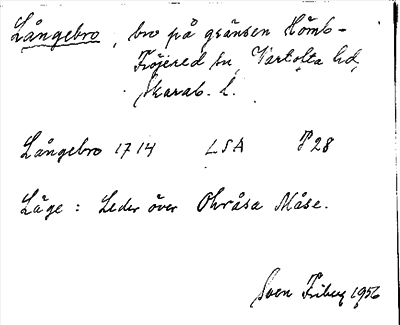 Långebro, bro på gränsen Hömb-
Fröjered sn, Vartofta hd,
Skarab. l.
Långebro 1714 LSA P28
Läge: Leder över Ohråsa Måse.
Sven Friberg 1956